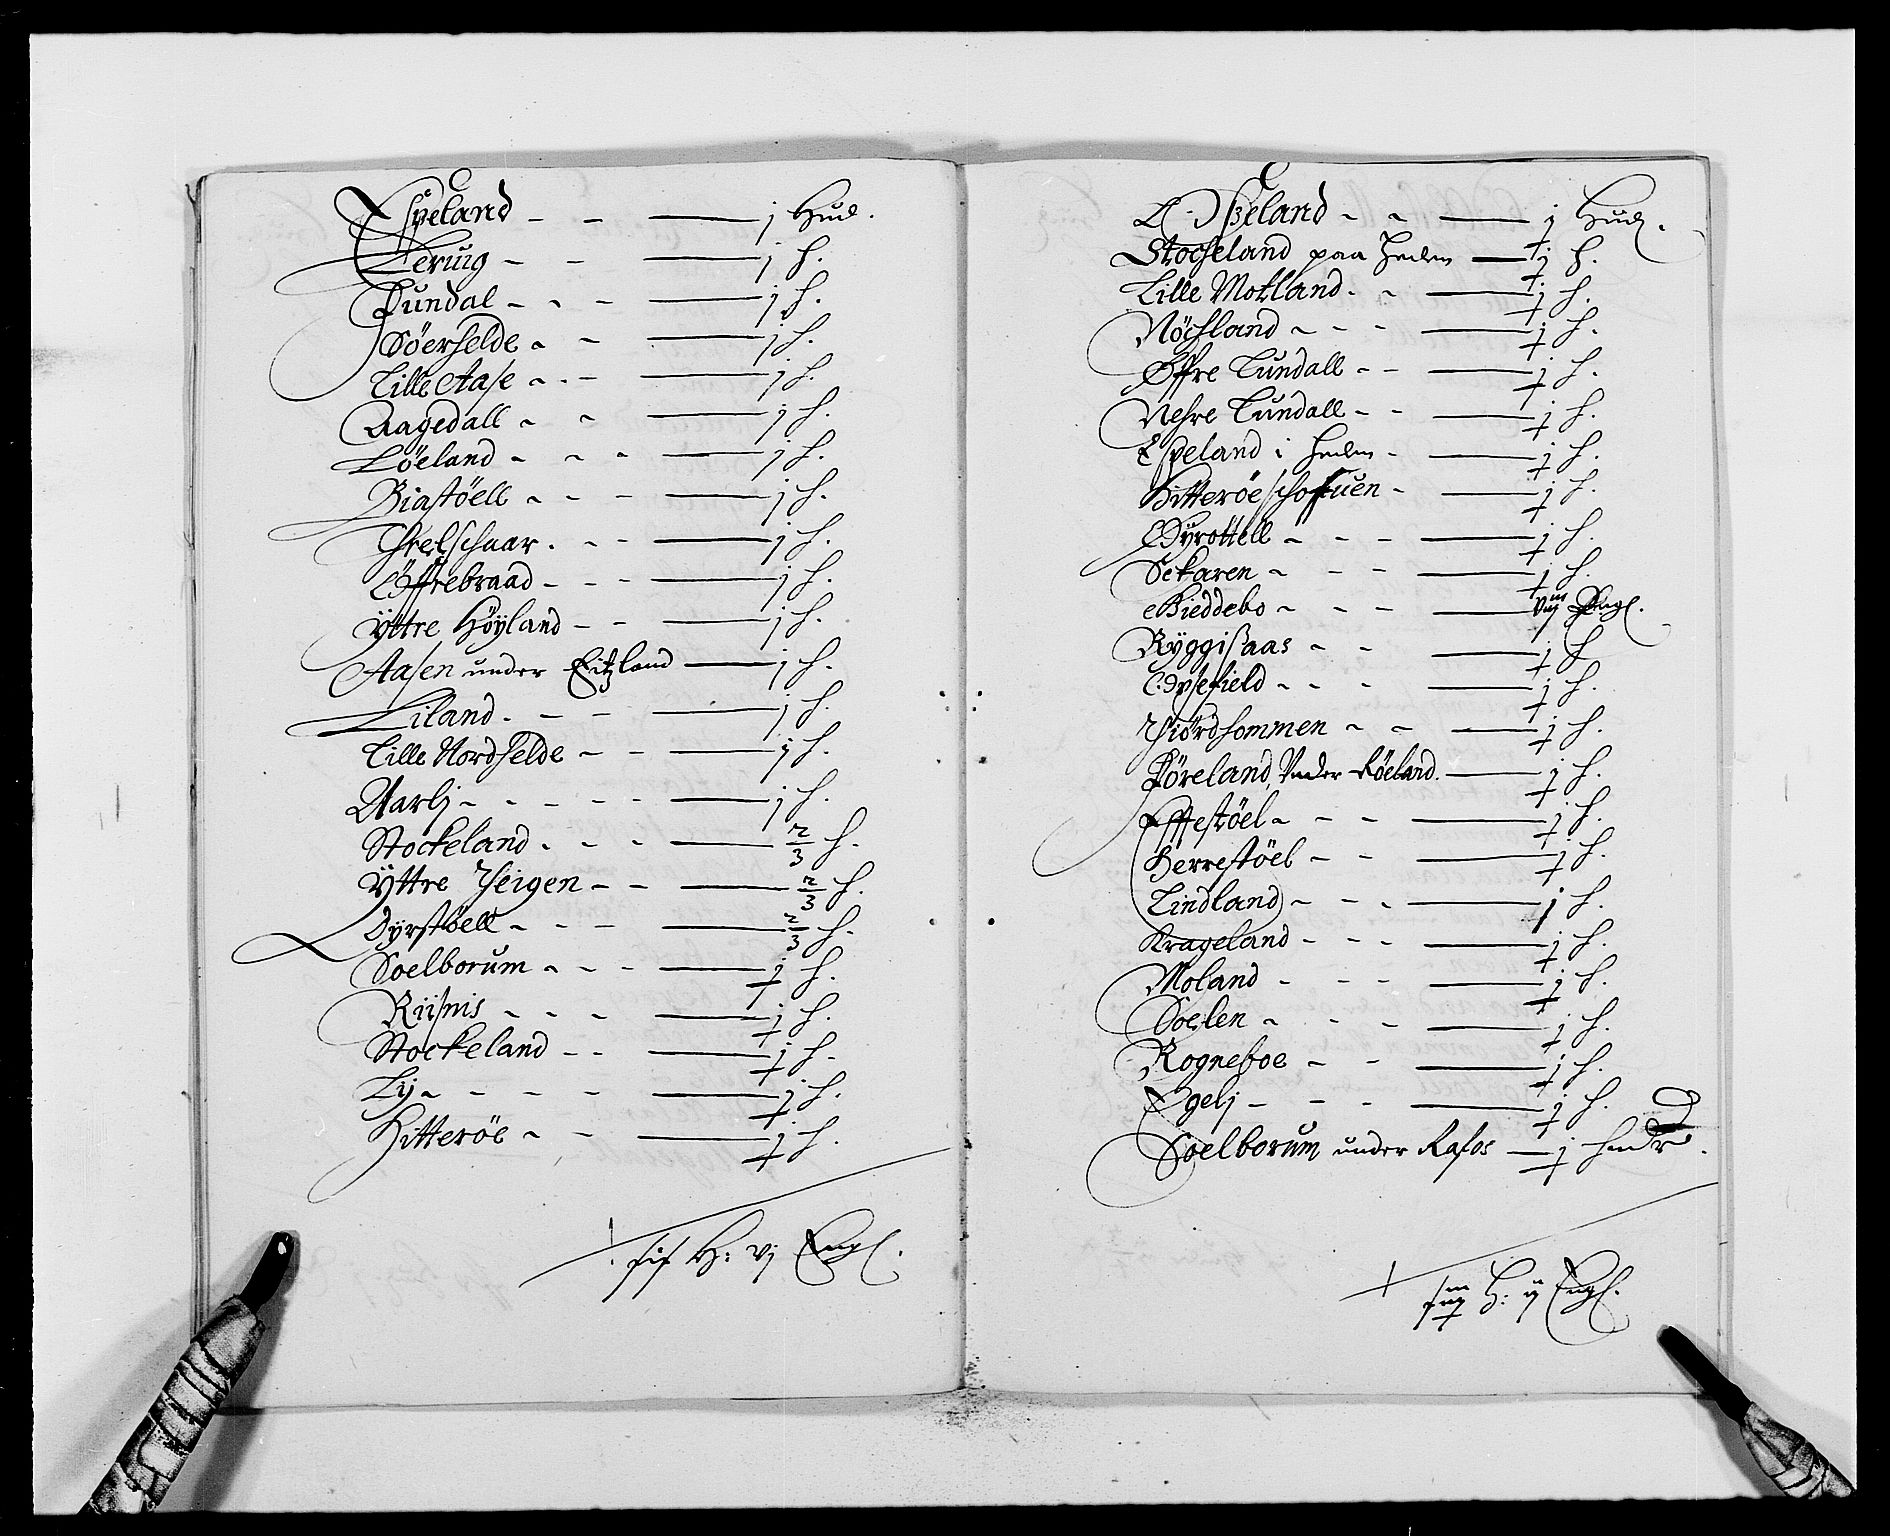 Espeland - - — j Hud.
Leruig - - — j h.
Lundal - - - — j h.
Söerhelde - - — j h.
Lille Aase - - - — j h.
Aagedall - - — j h.
Löeland - - - — j h.
Biastöell - - - — j h.
Threlschaar. - - — j h.
Öffrebraad - - - — j h.
Yttre Höyland - - — j h.
Aasen under Eitzland — j h.
Liland. - - — j h.
Lille Nordhelde - - — j h.
Aarlj - - - - - — j h.
Stockeland. - - - — 2/3 h.
Yttre Heigen - - — 2/3 h.
Dyrstöell - - - — 2/3 h.
Soelborum - - - — j h.
Riisnis - - - — j h.
Stockeland - - — j h.
Lij - - - - — j h.
Hitteröe - - — j h.
H: vj Engl.
Öpseland - - — j Hud.
Stocheland paa Heden — j h.
Lille Motland. - — j h.
Nöchland - - - — j h.
Öffre Lundall - - — j h.
Nehre Lundall - - — j h.
Espeland i Heden - — j h.
Hitteröe - — j h.
Dyrottell - - - — j h.
Sekaren - - - — j h.
Bieddebo - - - — Engl.
Ryggisaas - - — j h
Odsefield - - - — j h.
Fiördhommen - - — j h.
Döreland, Vnder Röeland. — j h.
Effestöel - - - — j h.
Herrestöel - - — j h.
Lindland - - - — j h.
Krageland - - - — j h.
Moland - - - — j h.
Soelen - - - — j h.
Rogneboe - - — j h.
Egelj - - - — j h.
Soelborum under Rafos — j
H: ij Engl.